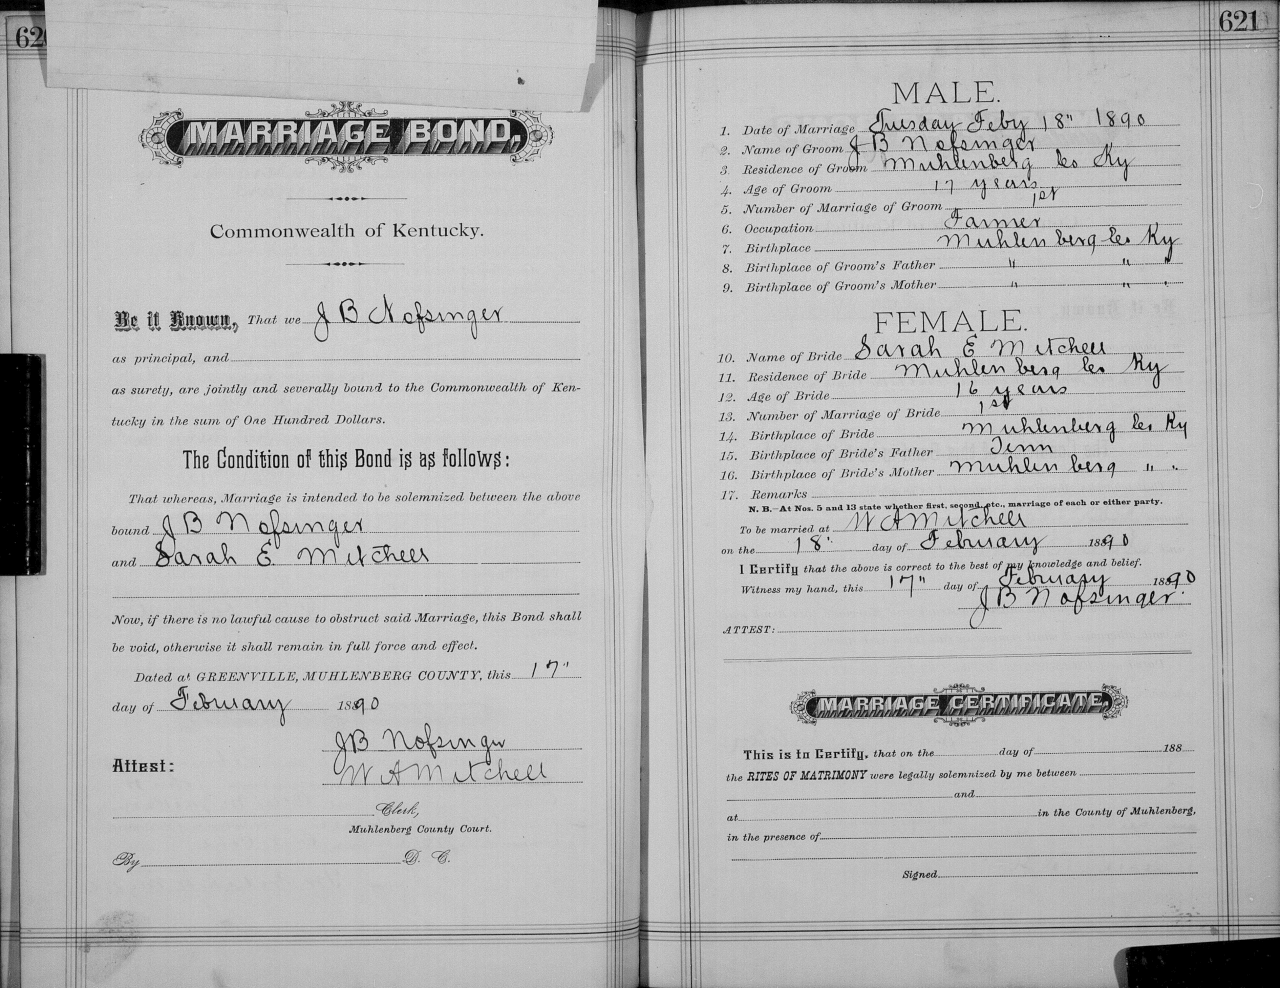 62
MARRIAGE BOND.
Commonwealth of Kentucky.
Be it Known, That we J B Nofsinger
as principal, and
as surety, are jointly and severally bound to the Commonwealth of Ken-
tucky in the sum of One Hundred Dollars.
The Condition of this Bond is as follows:
That whereas, Marriage is intended to be solemnized between the above
bound J B Nofsinger
and Sarah E. Mitchell
Now, if there is no lawful cause to obstruct said Marriage, this Bond shall
be void, otherwise it shall remain in full force and effect.
Dated at GREENVILLE, MUHLENBERG COUNTY, this 17"
day of February 1890
J B Nofsinger
Attest: W A Mitchell
Clerk,
Muhlenberg County Court.
By D. C.
621
MALE.
1. Date of Marriage Tuesday Feby 18" 1890
2. Name of Groom J B Nofsinger
3. Residence of Groom Muhlenberg Co Ky
4. Age of Groom 17 years
5. Number of Marriage of Groom 1st
6. Occupation Farmer
7. Birthplace Muhlenberg Co Ky
8. Birthplace of Groom's Father " " "
9. Birthplace of Groom's Mother " " "
FEMALE.
10. Name of Bride Sarah E Mitchell
11. Residence of Bride Muhlenberg Co Ky
12. Age of Bride 16 years
13. Number of Marriage of Bride 1st
14. Birthplace of Bride Muhlenberg Co Ky
15. Birthplace of Bride's Father Tenn
16. Birthplace of Bride's Mother Muhlenberg " "
17. Remarks
N. B.—At Nos. 5 and 13 state whether first, second, etc., marriage of each or either party.
To be married at W A Mitchell
on the 18" day of February 1890
I Certify that the above is correct to the best of my knowledge and belief.
Witness my hand, this 17" day of February 1890
J B Nofsinger
ATTEST:
MARRIAGE CERTIFICATE.
This is to Certify, that on the day of 188
the RITES OF MATRIMONY were legally solemnized by me between
and
at in the County of Muhlenberg,
in the presence of
Signed